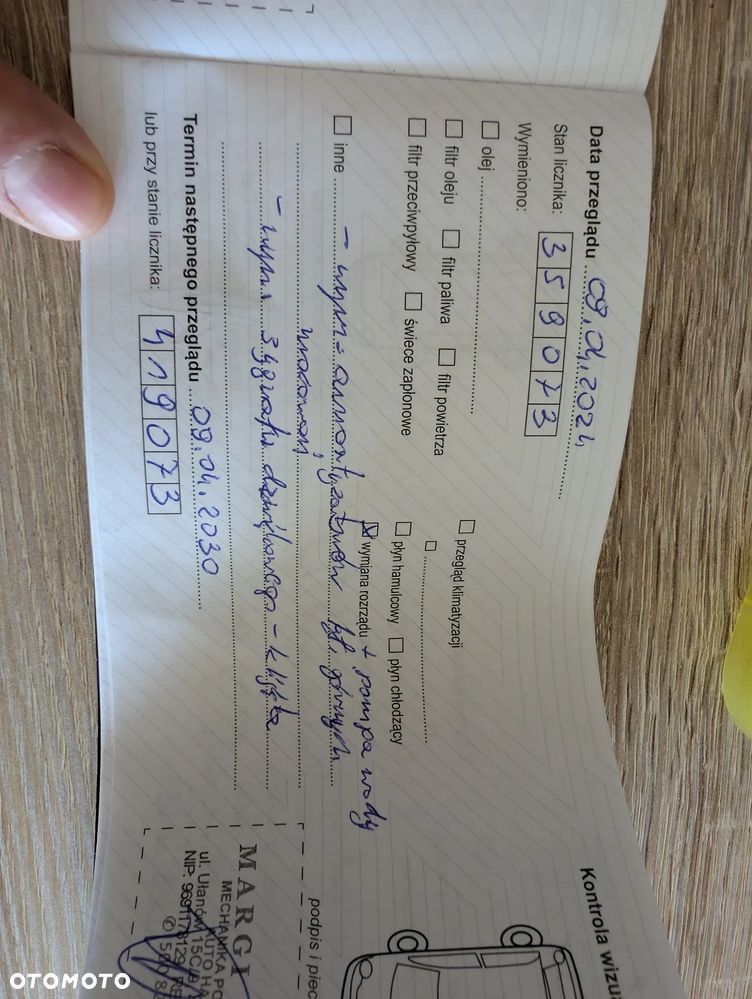 Data przeglądu 09.04.2024
Stan licznika: 359073
Wymieniono:
olej
filtr oleju filtr paliwa filtr powietrza
filtr przeciwpyłowy świece zapłonowe
przegląd klimatyzacji
płyn hamulcowy płyn chłodzący
wymiana rozrządu + pompa wody
inne - wym. amortyzatorów kl. górnych
- wym. sygnału dźwiękowego -
Termin następnego przeglądu 09.04.2030
lub przy stanie licznika: 419073
Kontrola wizu
podpis i piec
MARGI
MECHANIKA PO
AUTO HA
ul. Ułanów 15C/
NIP: 969117
OTOMOTO